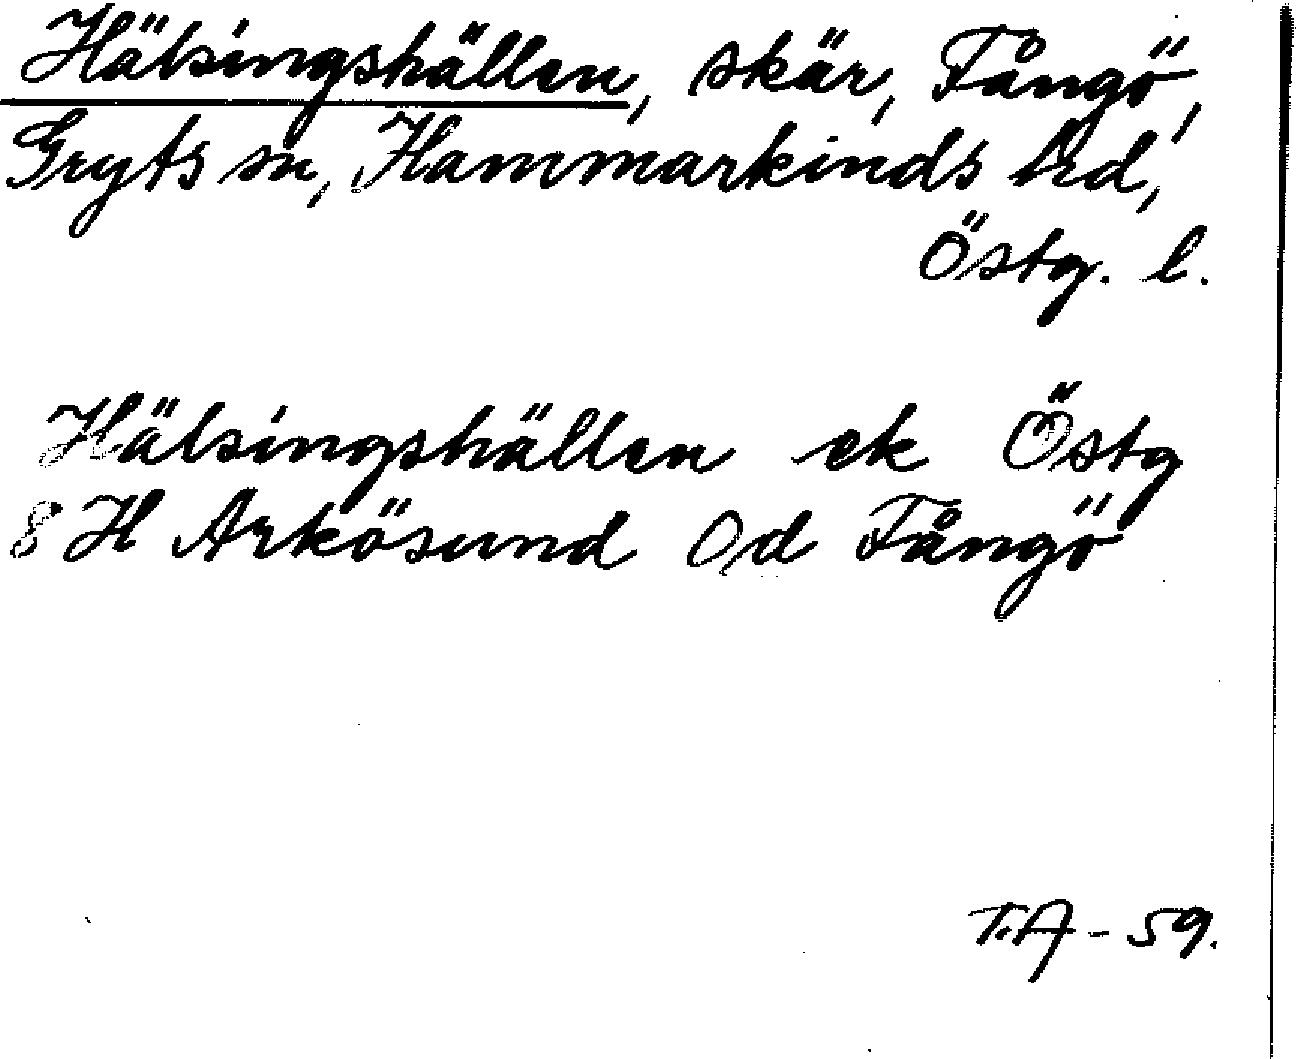 Hälsingshällen, skär, Fångö,
Gryts sn, Hammarkinds hrd,
Östg. l.
Hälsingshällen ek Östg
8 H Arkösund Od Fångö
T.A - 59.